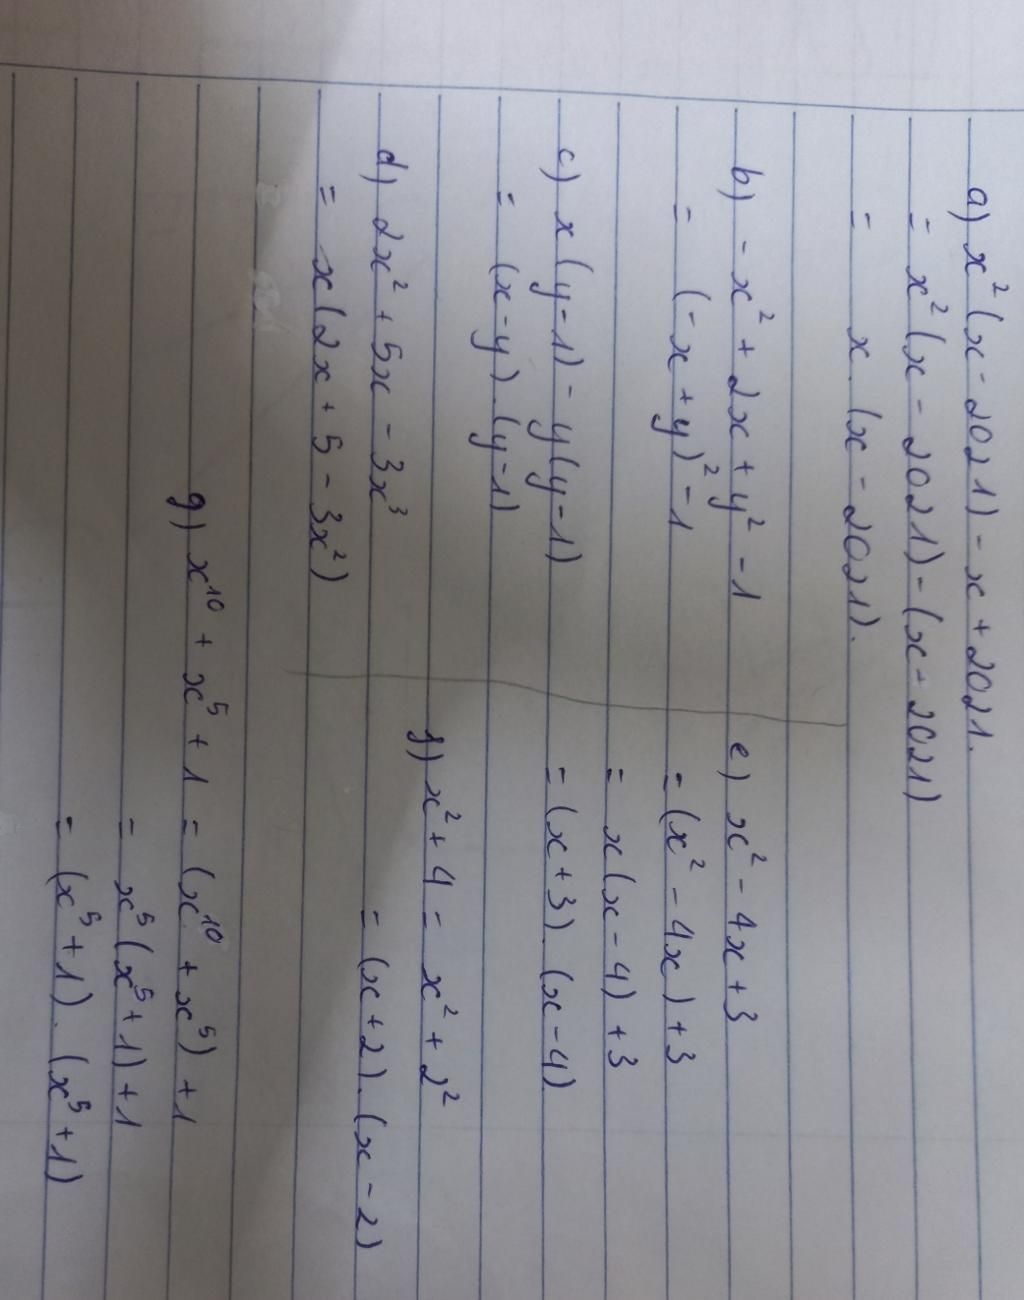 a) x² (x - 2021) - x + 2021.
= x² (x - 2021) - (x - 2021)
= x. (x - 2021).
b) - x² + 2x + y² - 1
= (-x + y)² - 1
c) x (y - 1) - y (y - 1)
= (x - y). (y - 1)
d) 2x² + 5x - 3x³
= x (2x + 5 - 3x²)
e) x² - 4x + 3
= (x² - 4x) + 3
= x (x - 4) + 3
= (x + 3). (x - 4)
f) x² + 4 = x² + 2²
= (x + 2). (x - 2)
g) x¹⁰ + x⁵ + 1 = (x¹⁰ + x⁵) + 1
= x⁵ (x⁵ + 1) + 1
= (x⁵ + 1). (x⁵ + 1)